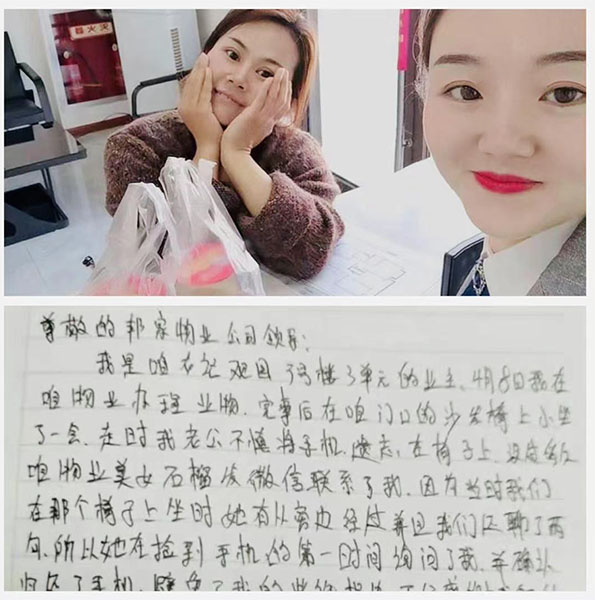 尊敬的邦家物业公司领导:
我是咱 观园 号楼3单元的业主,4月8日我在
咱物业办理业物,完事后在咱门口的沙发椅上小坐
了一会,走时我老公不慎将手机遗忘在椅子上,没想到
咱物业美女石榴发微信联系了我,因为当时我们
在那个椅子上坐时她有从旁边经过并且我们还聊了两
句,所以她在捡到手机的第一时间询问了我,并确认
归还了手机,避免了我的